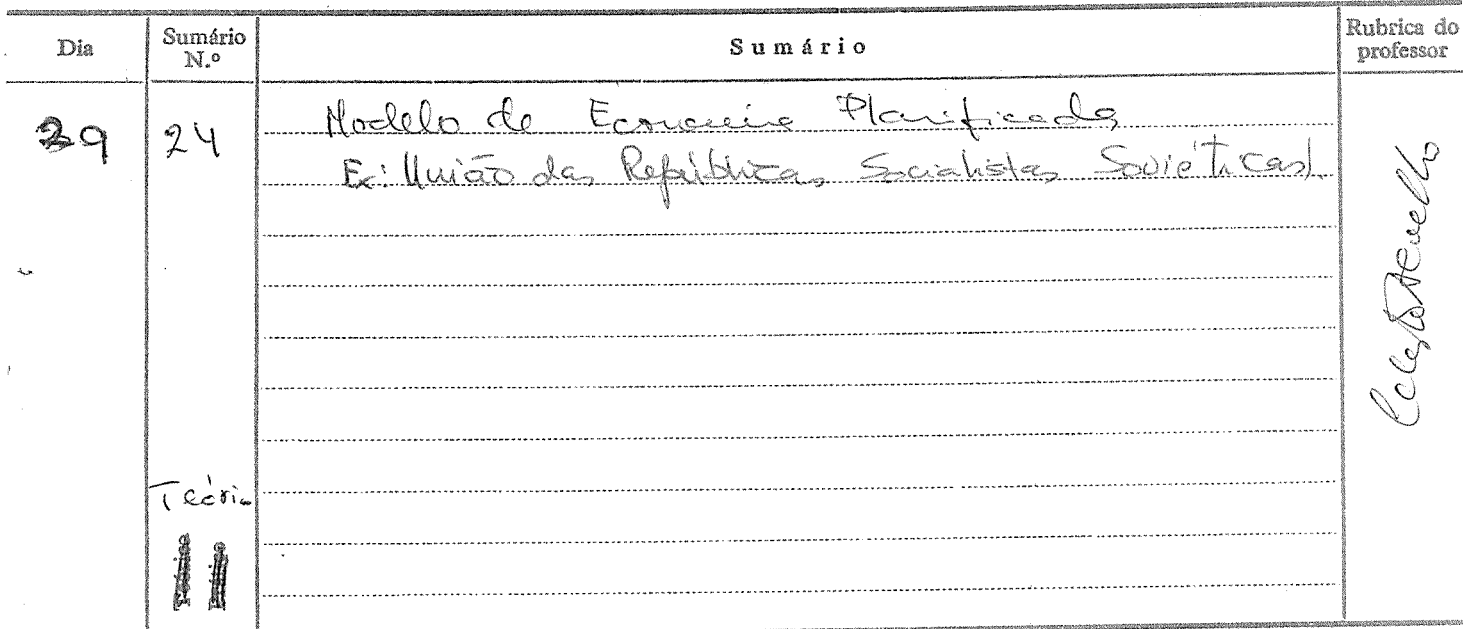 Dia
Sumário N.º
Sumário
Rubrica do professor
29
24
Modelo de Economia Planificada
Ex: União das Repúblicas Socialistas Soviéticas).
Teórica
11